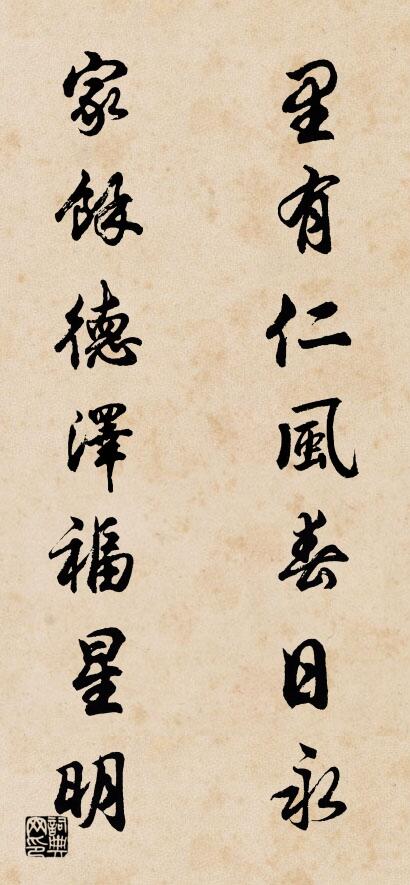 里有仁風春日永
家餘德澤福星明
詞典網印